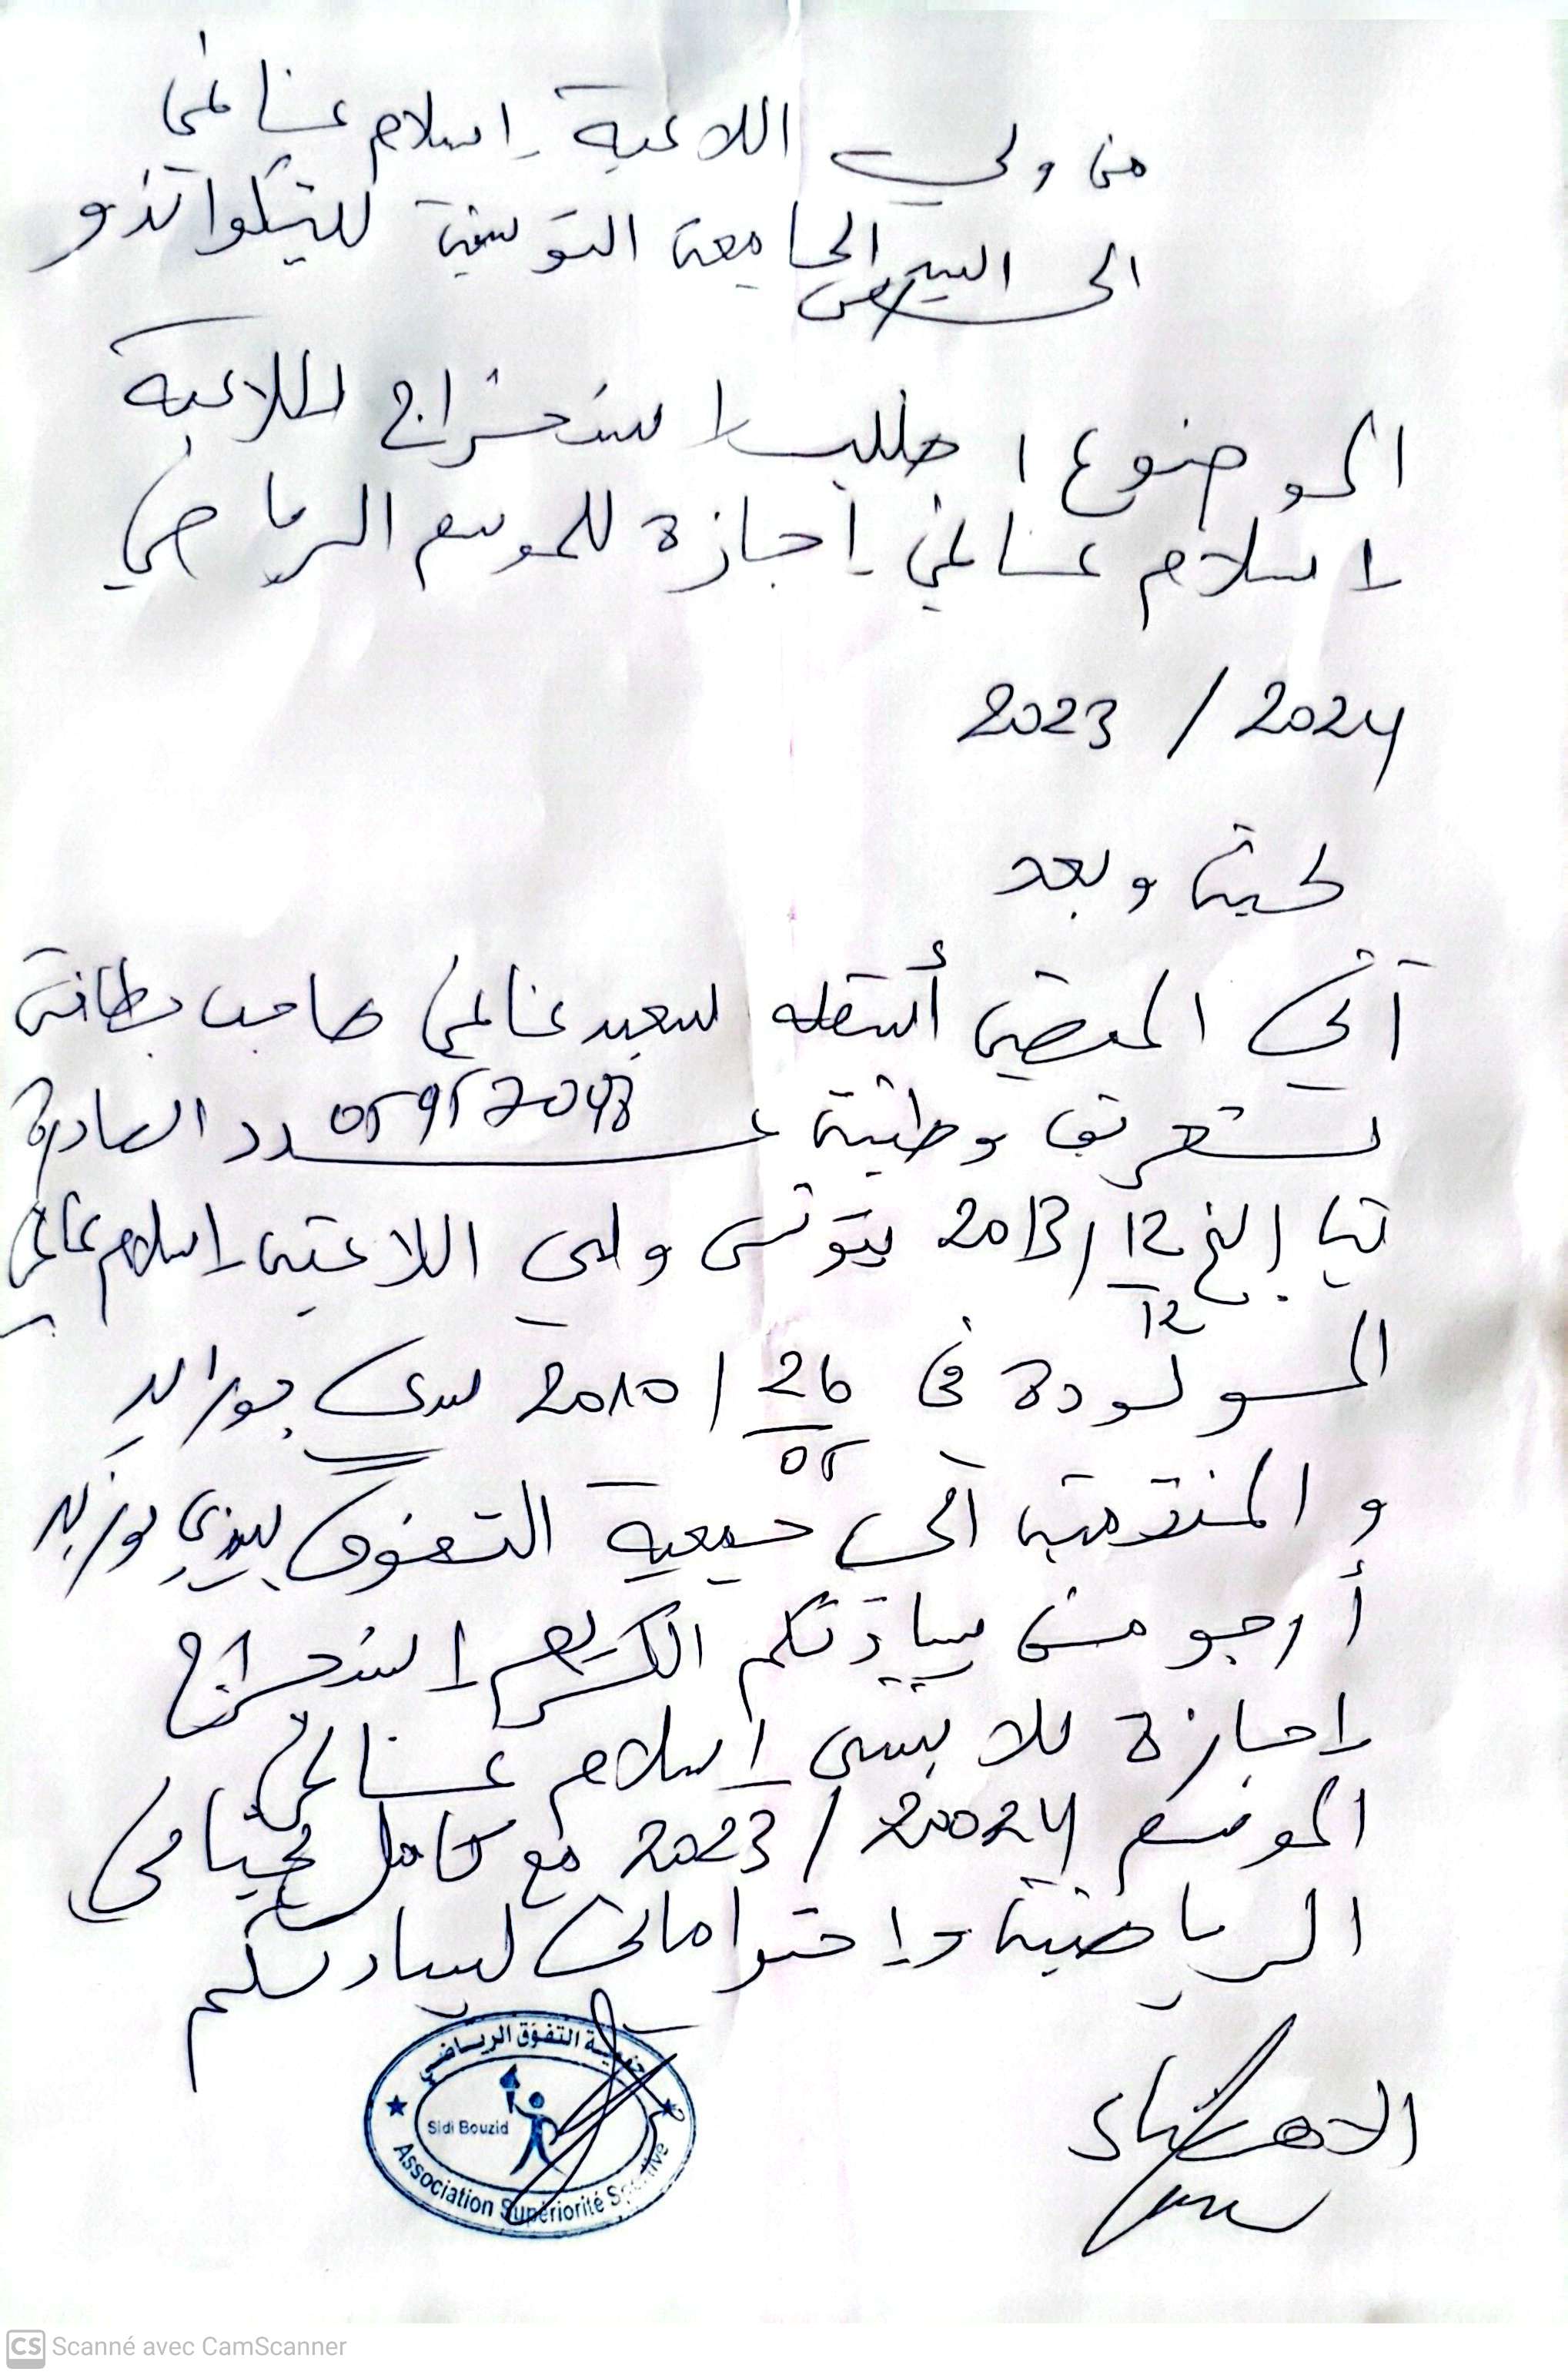 من ولي اللاعبة إسلام غانمي
الى السيد الجامعة التونسية للتيكواندو
الموضوع / طلب استخراج اللاعبة
اسلام غانمي إجازة للموسم الرياضي
2023 / 2024
تحية وبعد
أني الممضي أسفله سعيد غانمي صاحب بطاقة
تعريف وطنية عدد الصادرة
بتاريخ 12/12/2013 بتونس ولي اللاعبة إسلام غانمي
المولودة في 26/05/2010 سيدي بوزيد
و المنتمية الى جمعية التفوق بسيدي بوزيد
أرجو من سيادتكم الكريم استخراج
إجازة للابنتي إسلام غانمي
الموسم 2023 / 20024 مع كامل تحياتي
الرياضية و إحتراماتي لسيادتكم
الامضاء
جمعية التفوق الرياضي
Sidi Bouzid
Association Supériorité Sportive
CS Scanné avec CamScanner